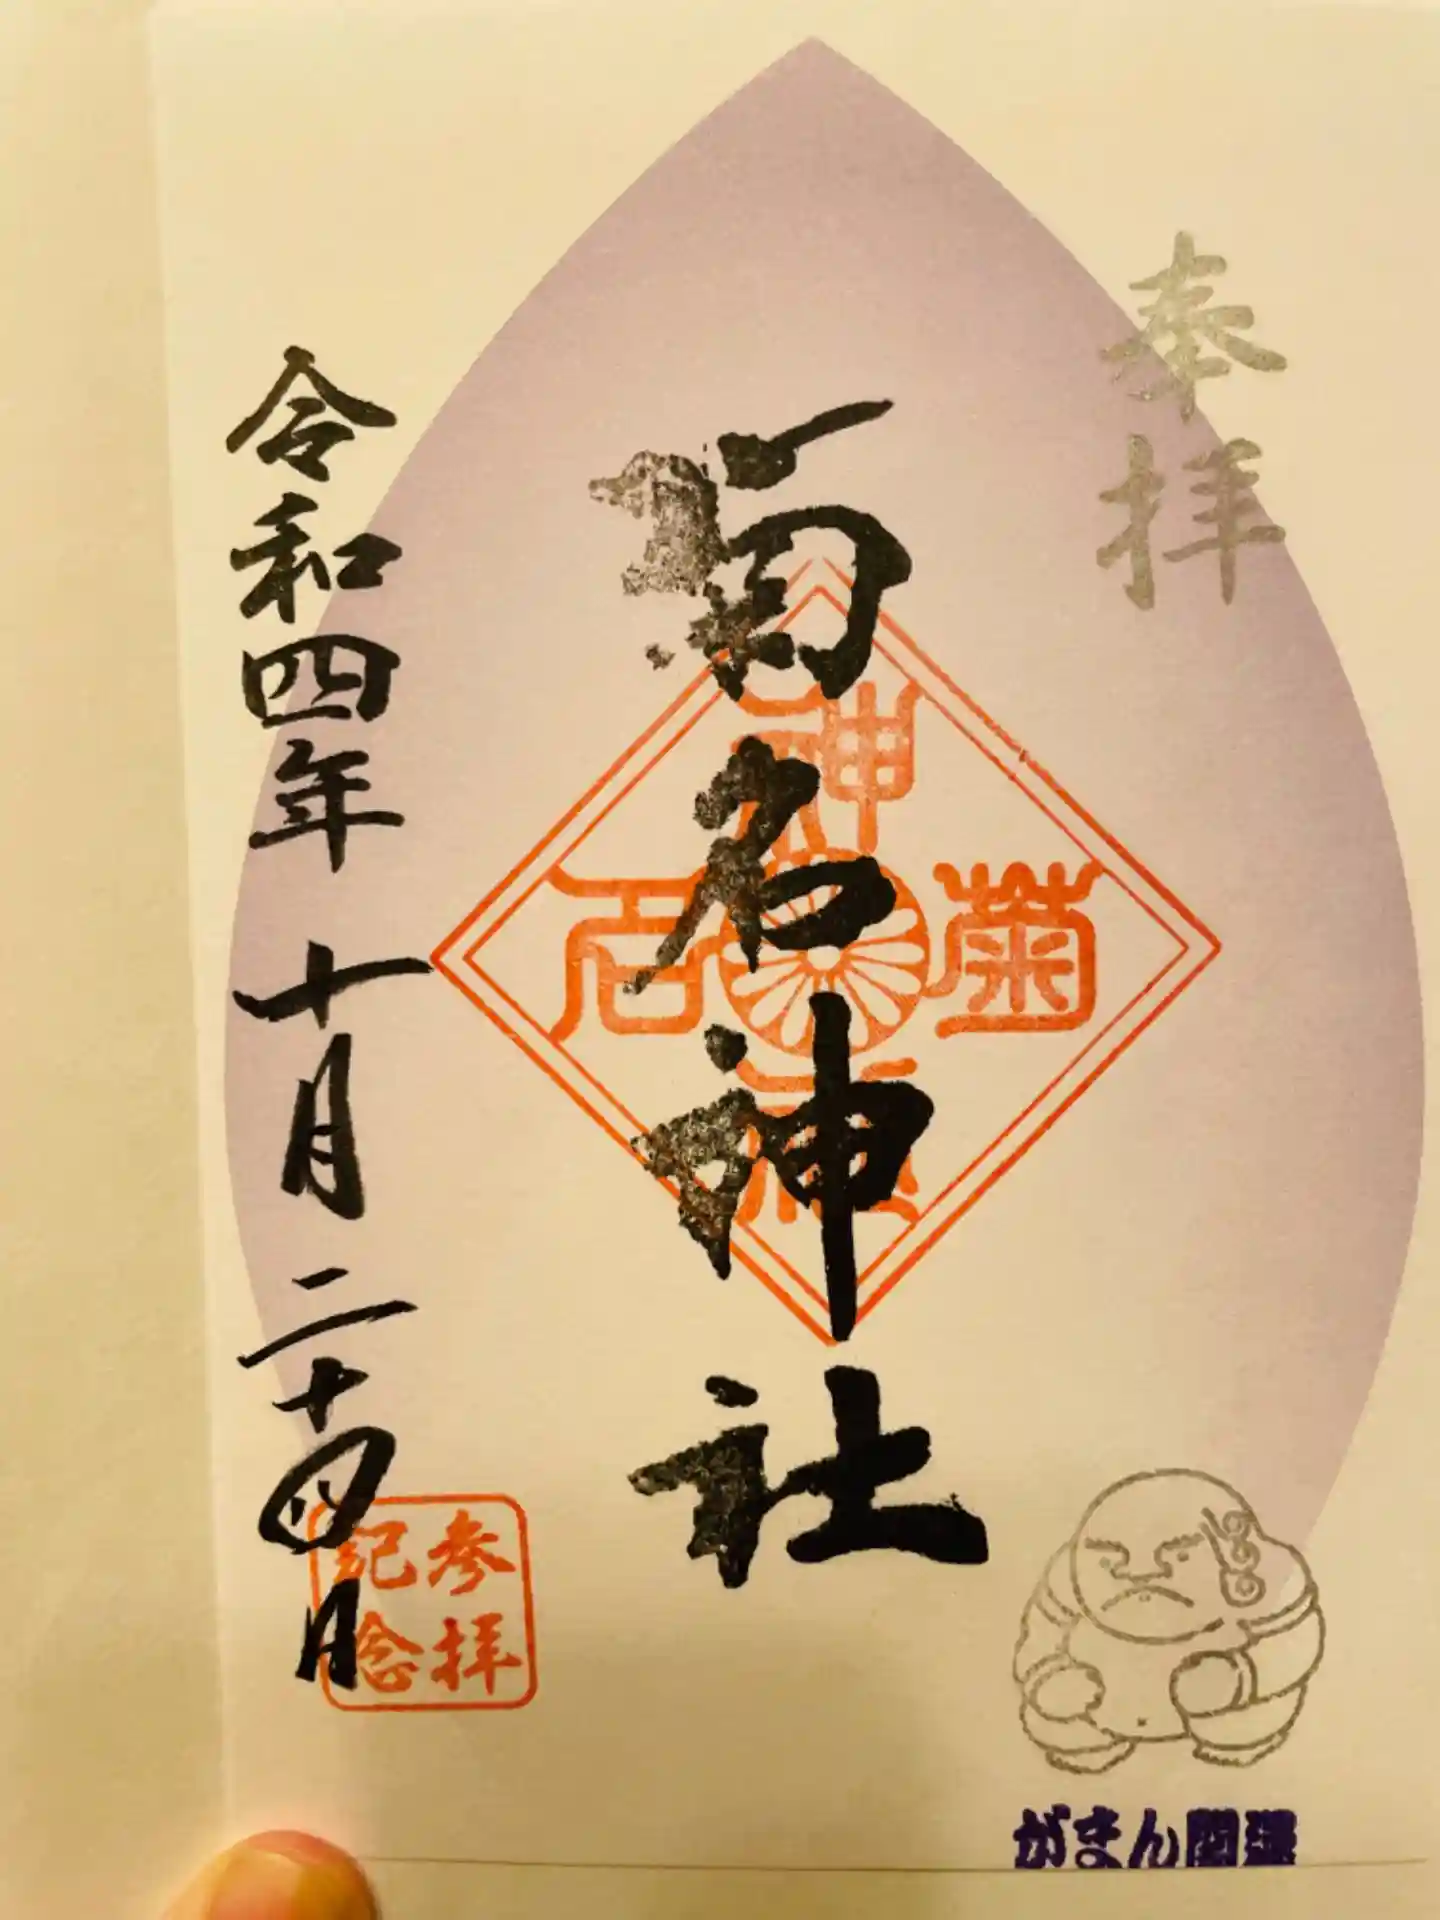 奉拝
菊名神社
菊
名
神
令和四年 十月 二十四日
参拝
記念
がまん開運